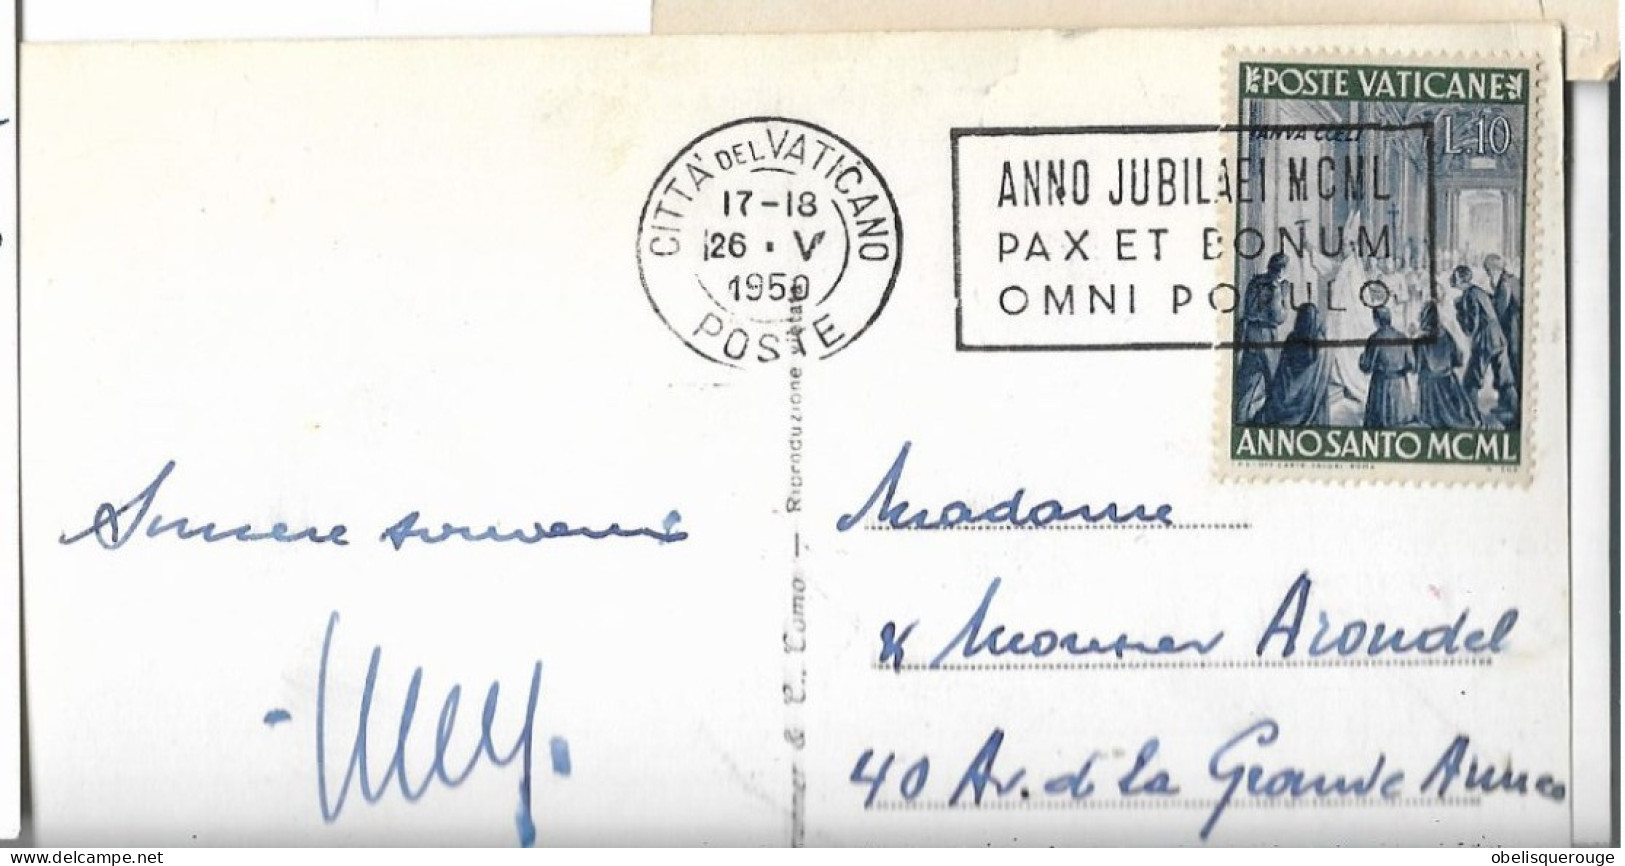 CITTA' DEL VATICANO
17-18
26 · V
1950
POSTE
ANNO JUBILAEI MCML
PAX ET BONUM
OMNI POPULO
POSTE VATICANE
IANVA COELI
L.10
ANNO SANTO MCML
Sincere souvenir
Madame
& Monsieur Arondel
40 Av. de la Grande Armee
& C., Como — Riproduzione vietata
obelisquerouge